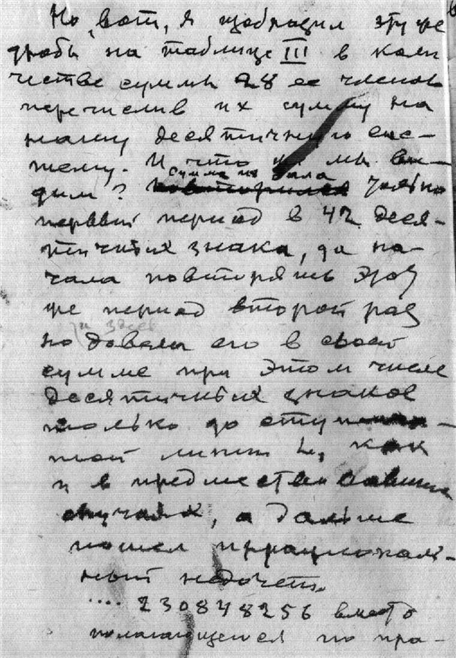 Но, вот, я изобразил эту же
дробь на таблице III в коли
честве суммы 28 ее членов
перечислив их сумму на
нашу десятичную сис-
тему. И что же мы ви-
Сумма их дала
дим? только
первый период в 42 деся-
тичных знака, да на-
чала повторять этот
же период второй раз
и здесь
но довела его в своей
сумме при этом числе
десятичных знаков
только до ступен-
той линии L, как
и в предшествовавших
случаях, а дальше
пошел иррациональ-
ный недочет.
.... 230848256 вместо
полагающегося по пра-